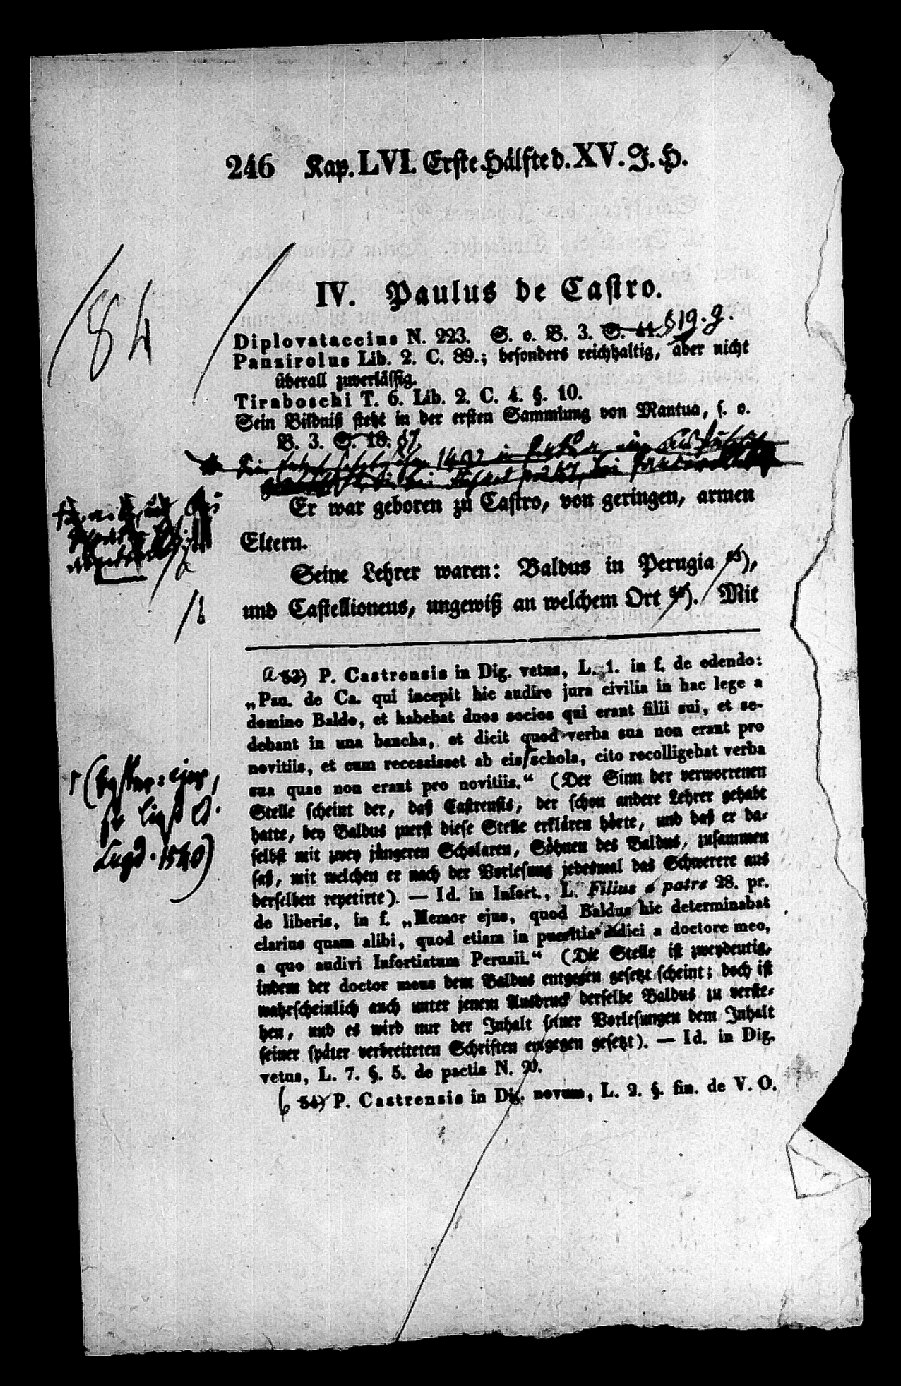 246 Kap. LVI. Erste Hälfte d. XV. J. H.
84
IV. Paulus de Castro.
Diplovataccius N. 223. S. o. B. 3. S. 44. § 19. g.
Pansirolus Lib. 2. C. 89.; besonders reichhaltig, aber nicht
überall zuverlässig.
Tiraboschi T. 6. Lib. 2. C. 4. §. 10.
Sein Bildniß steht in der ersten Sammlung von Mantua, s. o.
B. 3. S. 18. § 7.
Er war geboren zu Castro, von geringen, armen
Eltern.
Seine Lehrer waren: Baldus in Perugia ⁵³),
und Castellioneus, ungewiß an welchem Ort ⁵⁴). Mit
a 53) P. Castrensis in Dig. vetus, L. 1. in f. de edendo:
„Pau. de Ca. qui incepit hic audire jura civilia in hac lege a
domino Baldo, et habebat duos socios qui erant filii sui, et se-
debant in una bancha, et dicit quod verba sua non erant pro
novitiis, et cum recessisset ab eius schola, cito recolligebat verba
sua quae non erant pro novitiis.“ (Der Sinn der verworrenen
Stelle scheint der, daß Castrensis, der schon andere Lehrer gehabt
hatte, bey Baldus zuerst diese Stelle erklären hörte, und daß er da-
selbst mit zwey jüngeren Scholaren, Söhnen des Baldus, zusammen
saß, mit welchen er nach der Vorlesung jedesmal das Schwerere aus
derselben repetirte). — Id. in Infort., L. Filius a patre 28. pr.
de liberis, in f. „Memor ejus, quod Baldus hic determinabat
clarius quam alibi, quod etiam in pueritia didici a doctore meo,
a quo audivi Infortiatum Perusii.“ (Die Stelle ist zweydeutig,
indem der doctor meus dem Baldus entgegen gesetzt scheint; doch ist
wahrscheinlich auch unter jenem Ausdruck derselbe Baldus zu verste-
hen, und es wird nur der Inhalt seiner Vorlesungen dem Inhalt
seiner später verbreiteten Schriften entgegen gesetzt). — Id. in Dig.
vetus, L. 7. §. 5. de pactis N. 20.
b 54) P. Castrensis in Dig. novum, L. 2. §. fin. de V. O.
Lugd. 1540)